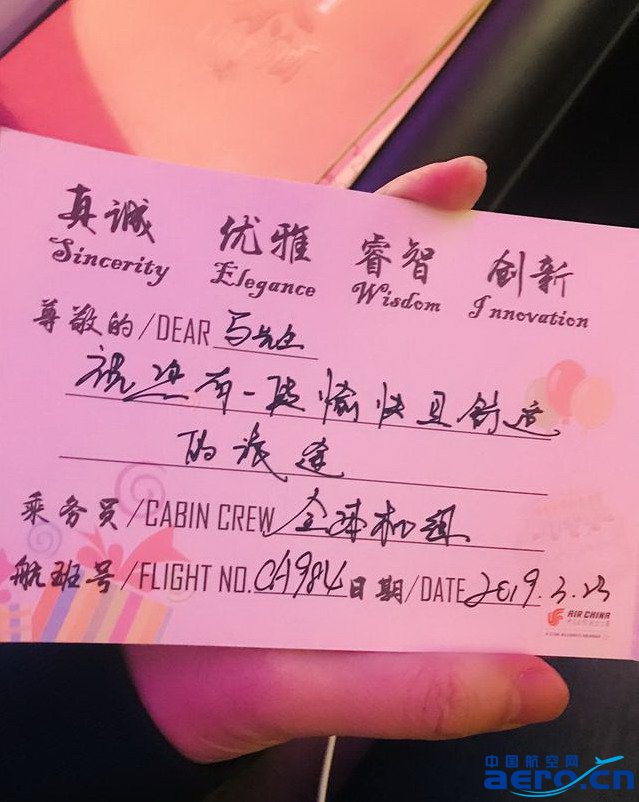 真诚 优雅 睿智 创新
Sincerity Elegance Wisdom Innovation
尊敬的/DEAR 马先生
祝您有一段愉快且舒适
的旅途
乘务员/CABIN CREW 全体机组
航班号/FLIGHT NO. CA984 日期/DATE 2019.3.23
AIR CHINA
A STAR ALLIANCE MEMBER
中国航空网
aero.cn